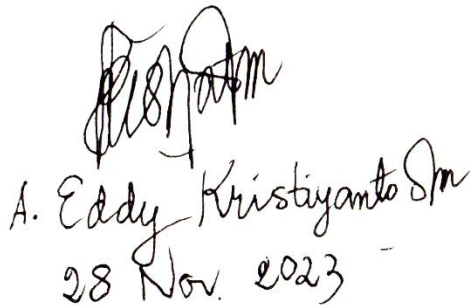 A. Eddy Kristiyanto Ofm
28 Nov. 2023